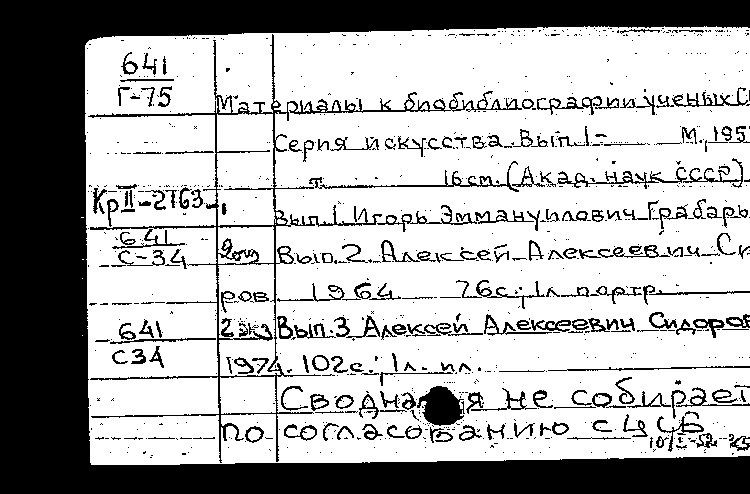 641
Г-75
Материалы к биобиблиографии ученых С
Серия искусства. Вып.1- М.,195
т. 16 см. (Акад. наук СССР)
Кр II-2763-
Вып.1. Игорь Эммануилович Грабарь
641
С-34
2 экз Вып.2. Алексей Алексеевич Си
ров. 1964. 76с.; 1л. портр.
641
С34
2 экз Вып.3 Алексей Алексеевич Сидоров
1974. 102с.; 1л. ил.
Сводная не собирает
по согласованию с ЦСБ